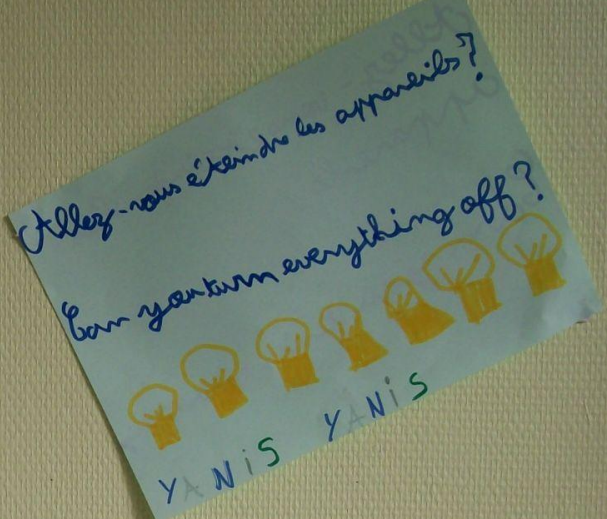 Allez-vous éteindre les appareils?
Can you turn everything off?
YANiS YANiS